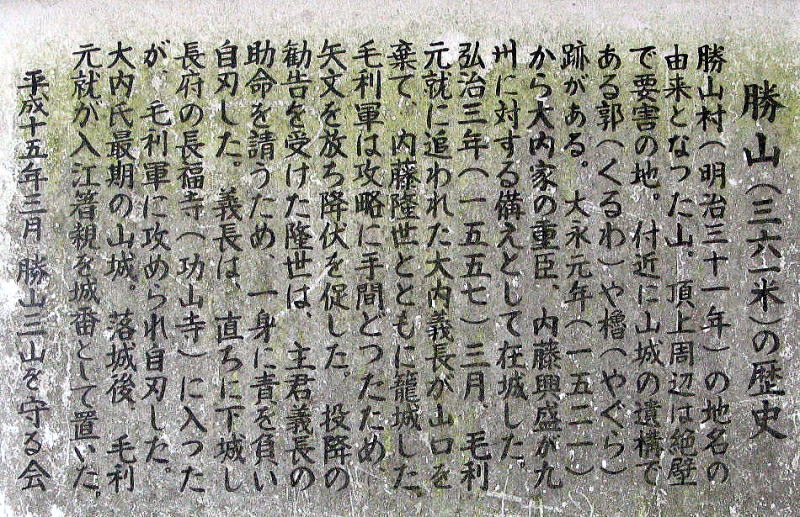 勝山（三六一米）の歴史
勝山村（明治三十一年）の地名の
由来となった山。頂上周辺は絶壁
で要害の地。付近に山城の遺構で
ある郭（くるわ）や櫓（やぐら）
跡がある。大永元年（一五二一）
から大内家の重臣、内藤興盛が九
州に対する備えとして在城した。
弘治三年（一五五七）三月、毛利
元就に追われた大内義長が山口を
棄て、内藤隆世とともに籠城した。
毛利軍は攻略に手間どったため、
矢文を放ち降伏を促した。投降の
勧告を受けた隆世は、主君義長の
助命を請うため、一身に責を負い
自刃した。義長は、直ちに下城し
長府の長福寺（功山寺）に入った
が、毛利軍に攻められ自刃した。
大内氏最期の山城。落城後、毛利
元就が入江著親を城番として置いた。
平成十五年三月 勝山三山を守る会